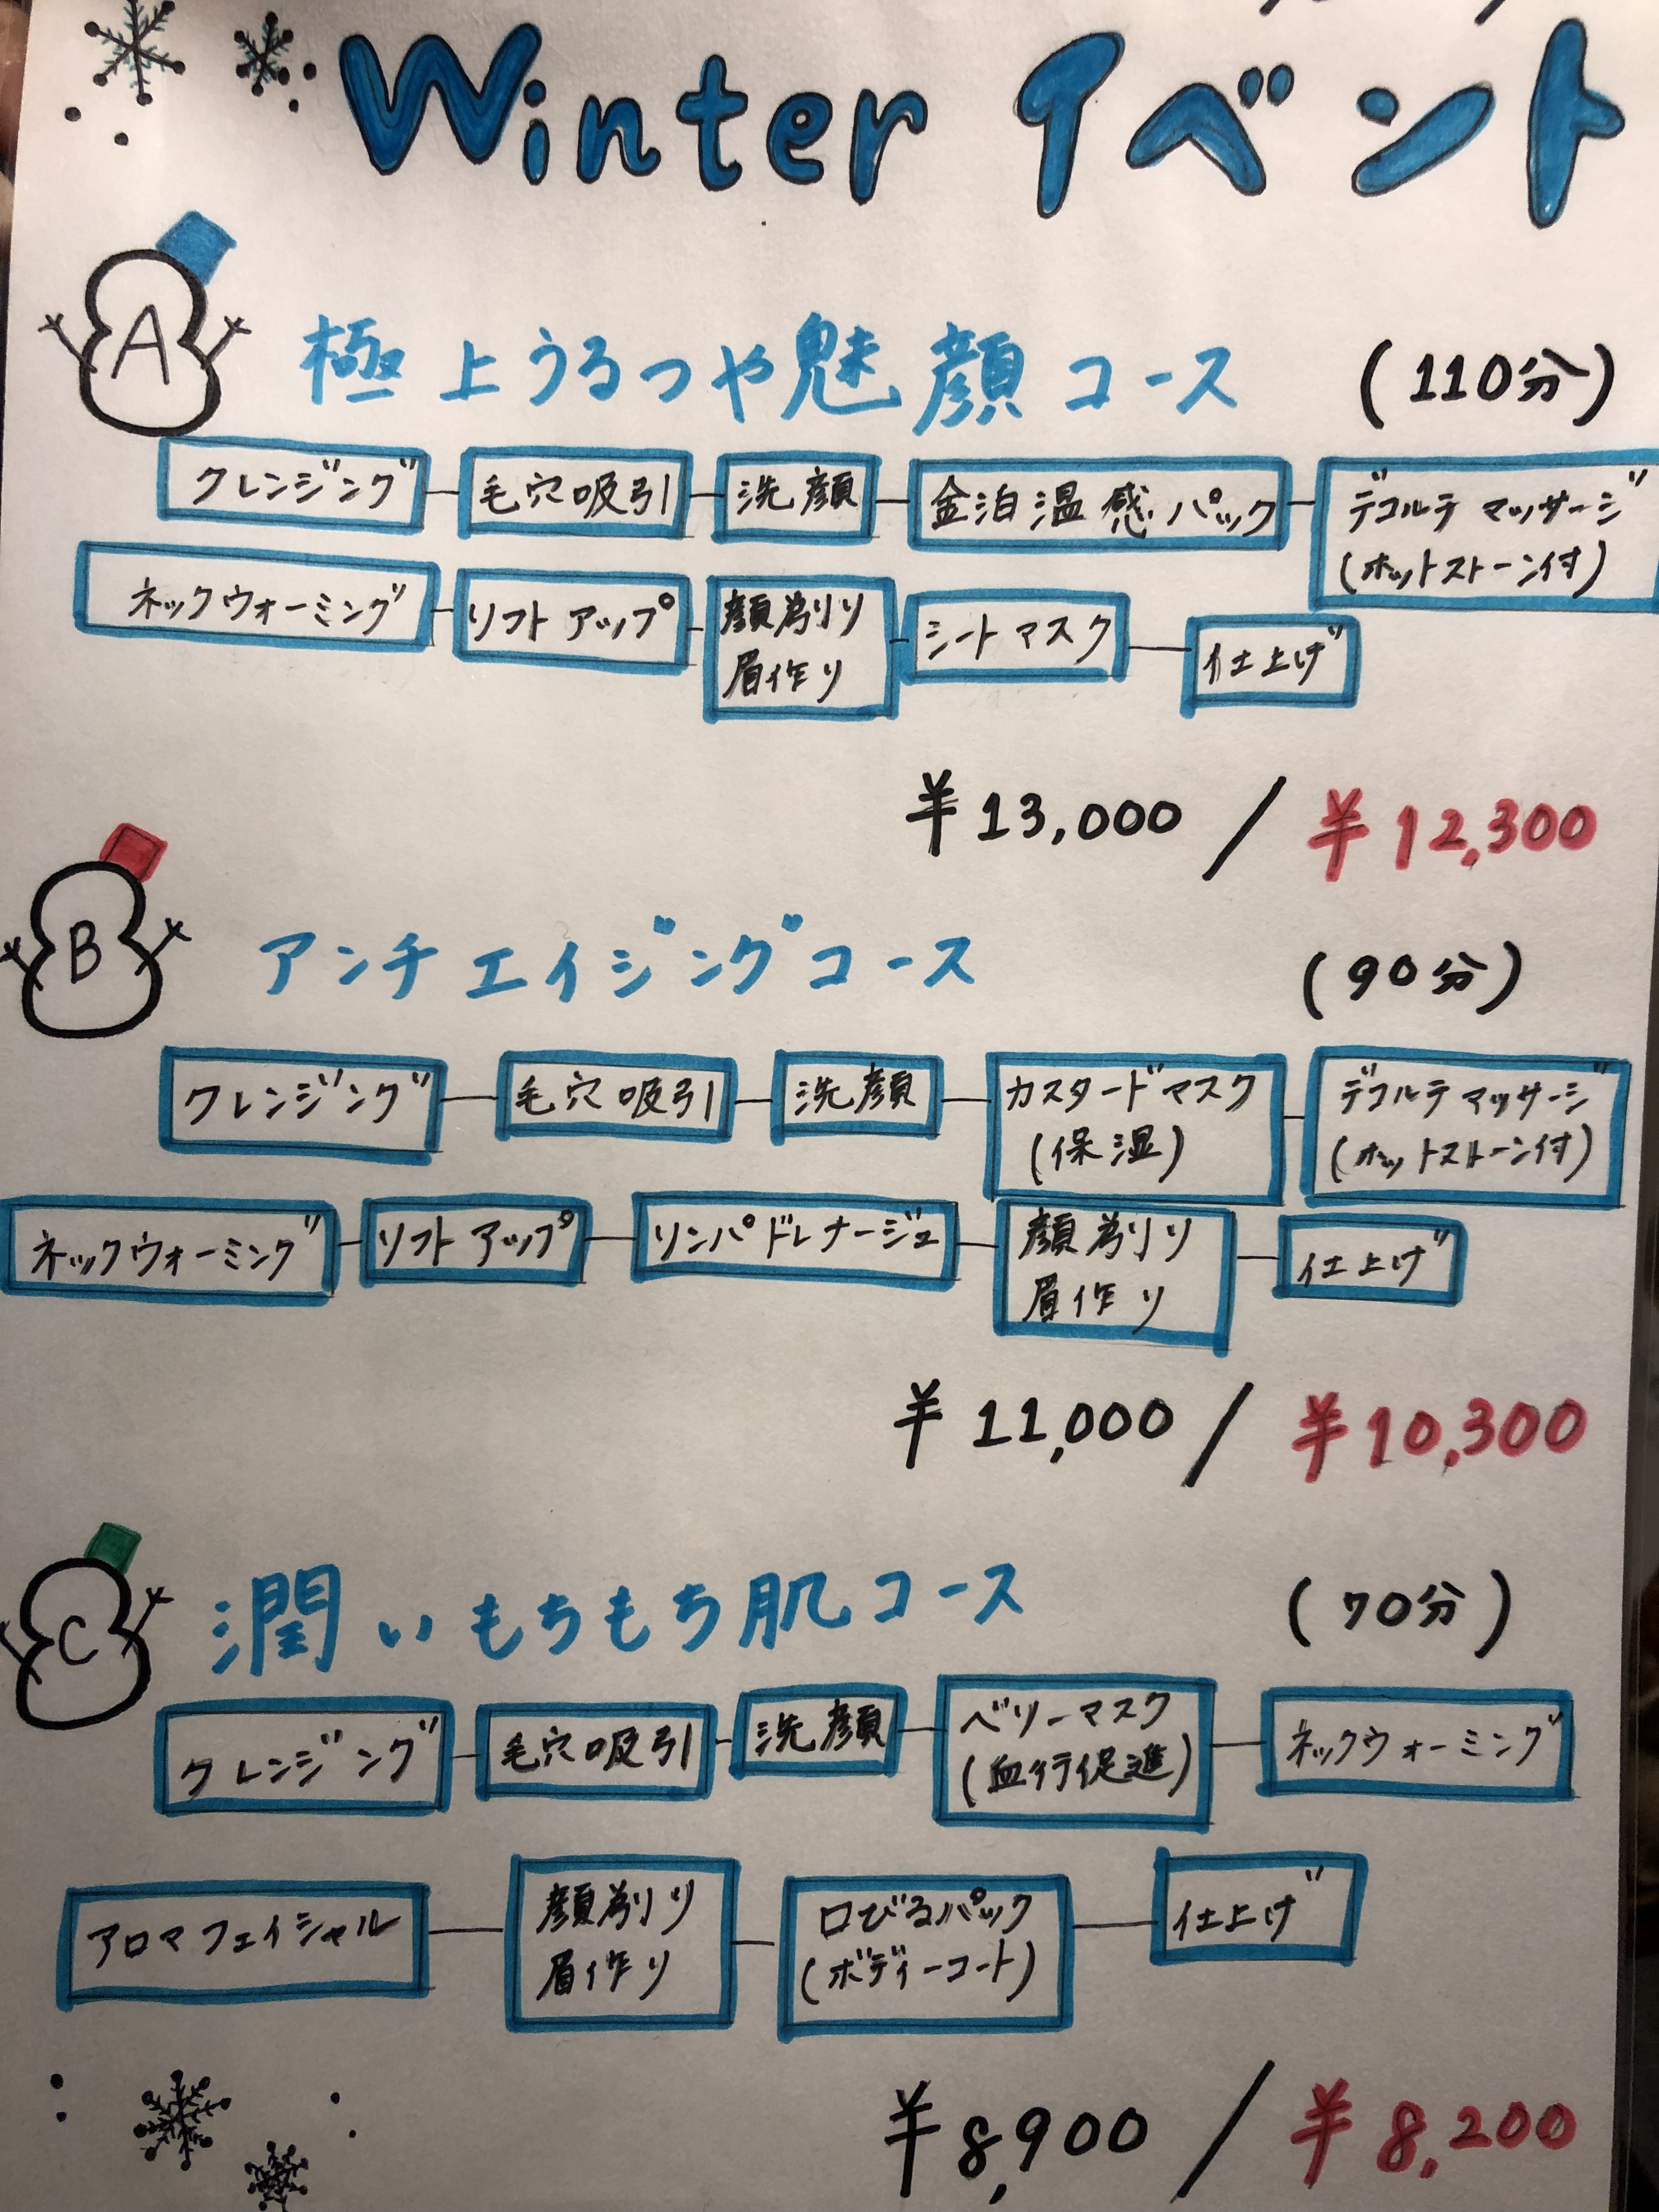 Winter イベント
A 極上うるつや魅顔コース (110分)
クレンジング 毛穴吸引 洗顔 金泊温感パック デコルテマッサージ
(ホットストーン付)
ネックウォーミング リフトアップ 顔剃り シートマスク 仕上げ
眉作り
¥13,000 / ¥12,300
B アンチエイジングコース (90分)
クレンジング 毛穴吸引 洗顔 カスタードマスク デコルテマッサージ
(保湿) (ホットストーン付)
ネックウォーミング リフトアップ リンパドレナージュ 顔剃り 仕上げ
眉作り
¥11,000 / ¥10,300
C 潤いもちもち肌コース (70分)
クレンジング 毛穴吸引 洗顔 ベリーマスク ネックウォーミング
(血行促進)
アロマフェイシャル 顔剃り 口びるパック 仕上げ
眉作り (ボディーコート)
¥8,900 / ¥8,200